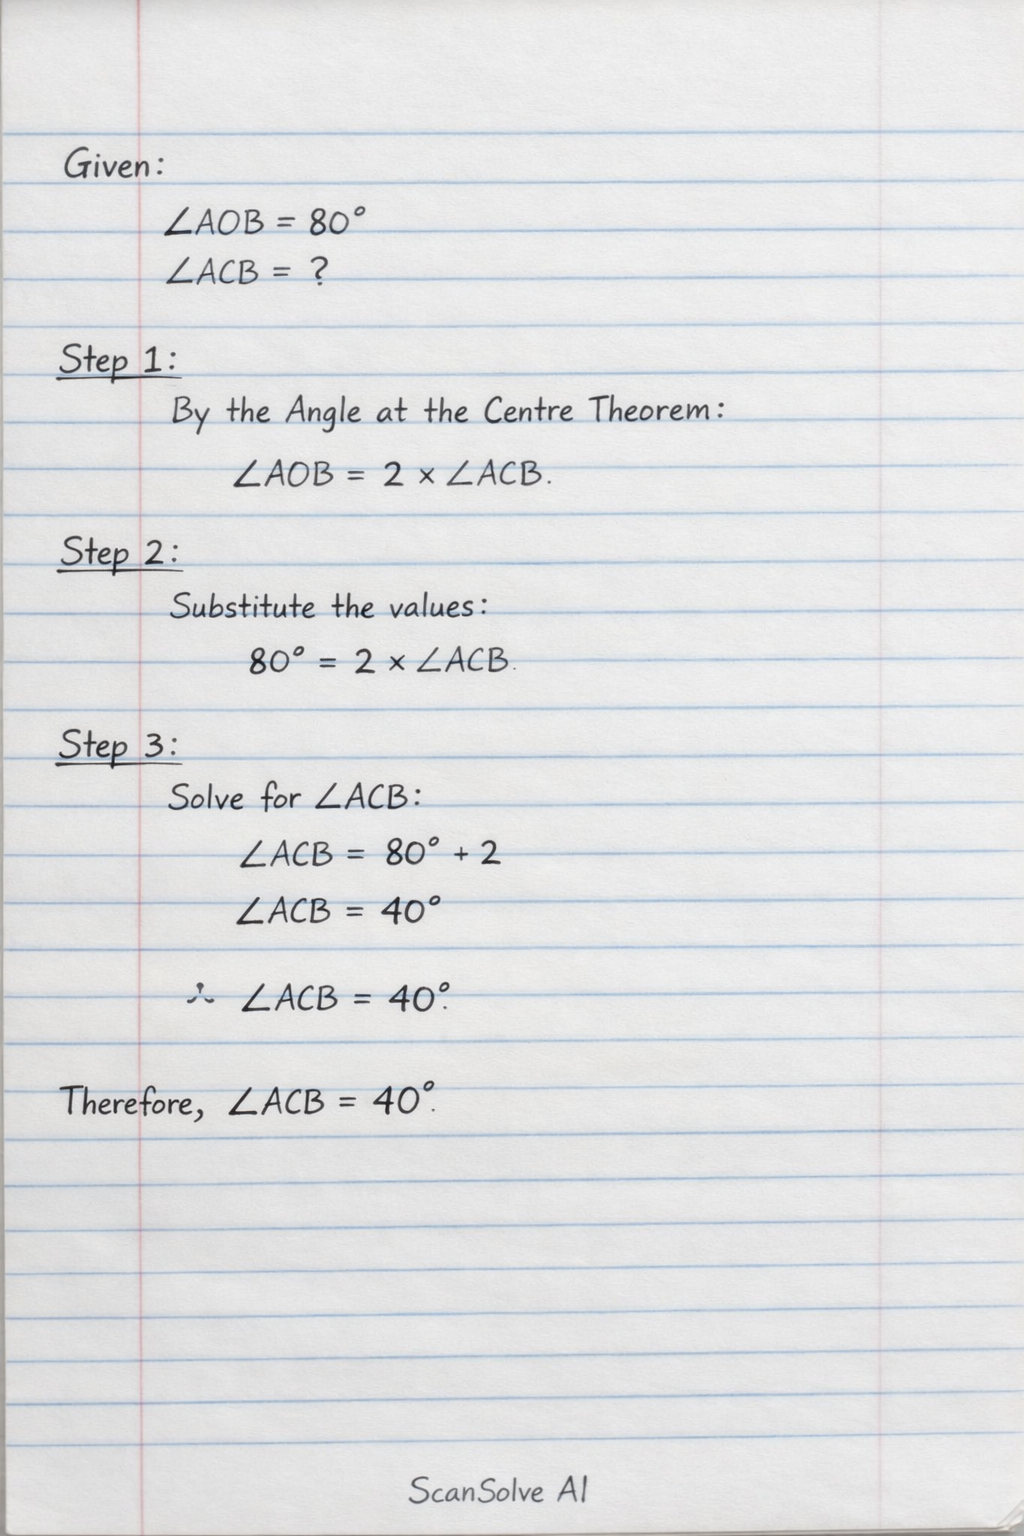 Given:
∠AOB = 80°
∠ACB = ?
Step 1:
By the Angle at the Centre Theorem:
∠AOB = 2 × ∠ACB.
Step 2:
Substitute the values:
80° = 2 × ∠ACB.
Step 3:
Solve for ∠ACB:
∠ACB = 80° + 2
∠ACB = 40°
∴ ∠ACB = 40°.
Therefore, ∠ACB = 40°.
ScanSolve AI